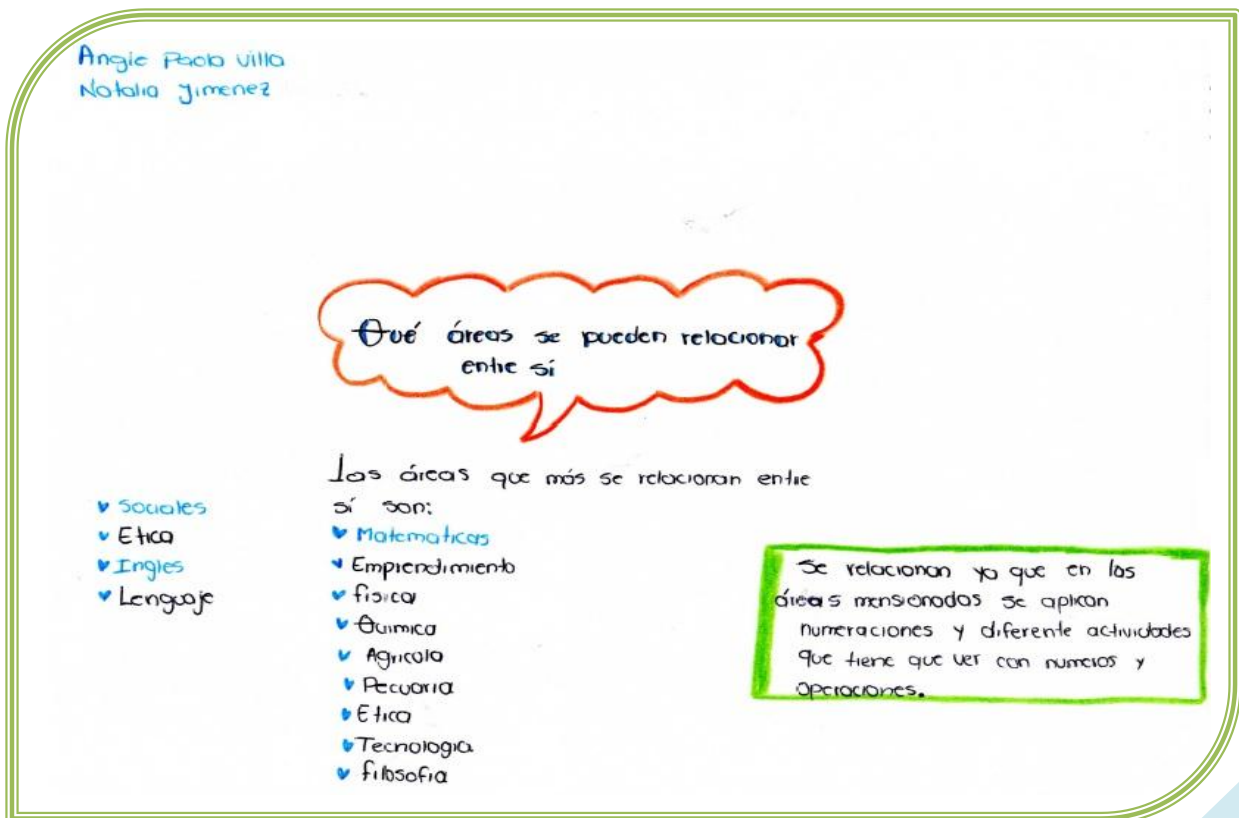 Angie Paola Villa
Natalia Jimenez
Qué áreas se pueden relacionar
entre sí
Las áreas que más se relacionan entre
sí son:
Matematicas
Emprendimiento
fisica
Quimica
Agricola
Pecuaria
Etica
Tecnologia
filosofia
Sociales
Etica
Ingles
Lenguaje
Se relacionan ya que en las
áreas mensionadas se aplican
numeraciones y diferente actividades
que tiene que ver con numeros y
operaciones.